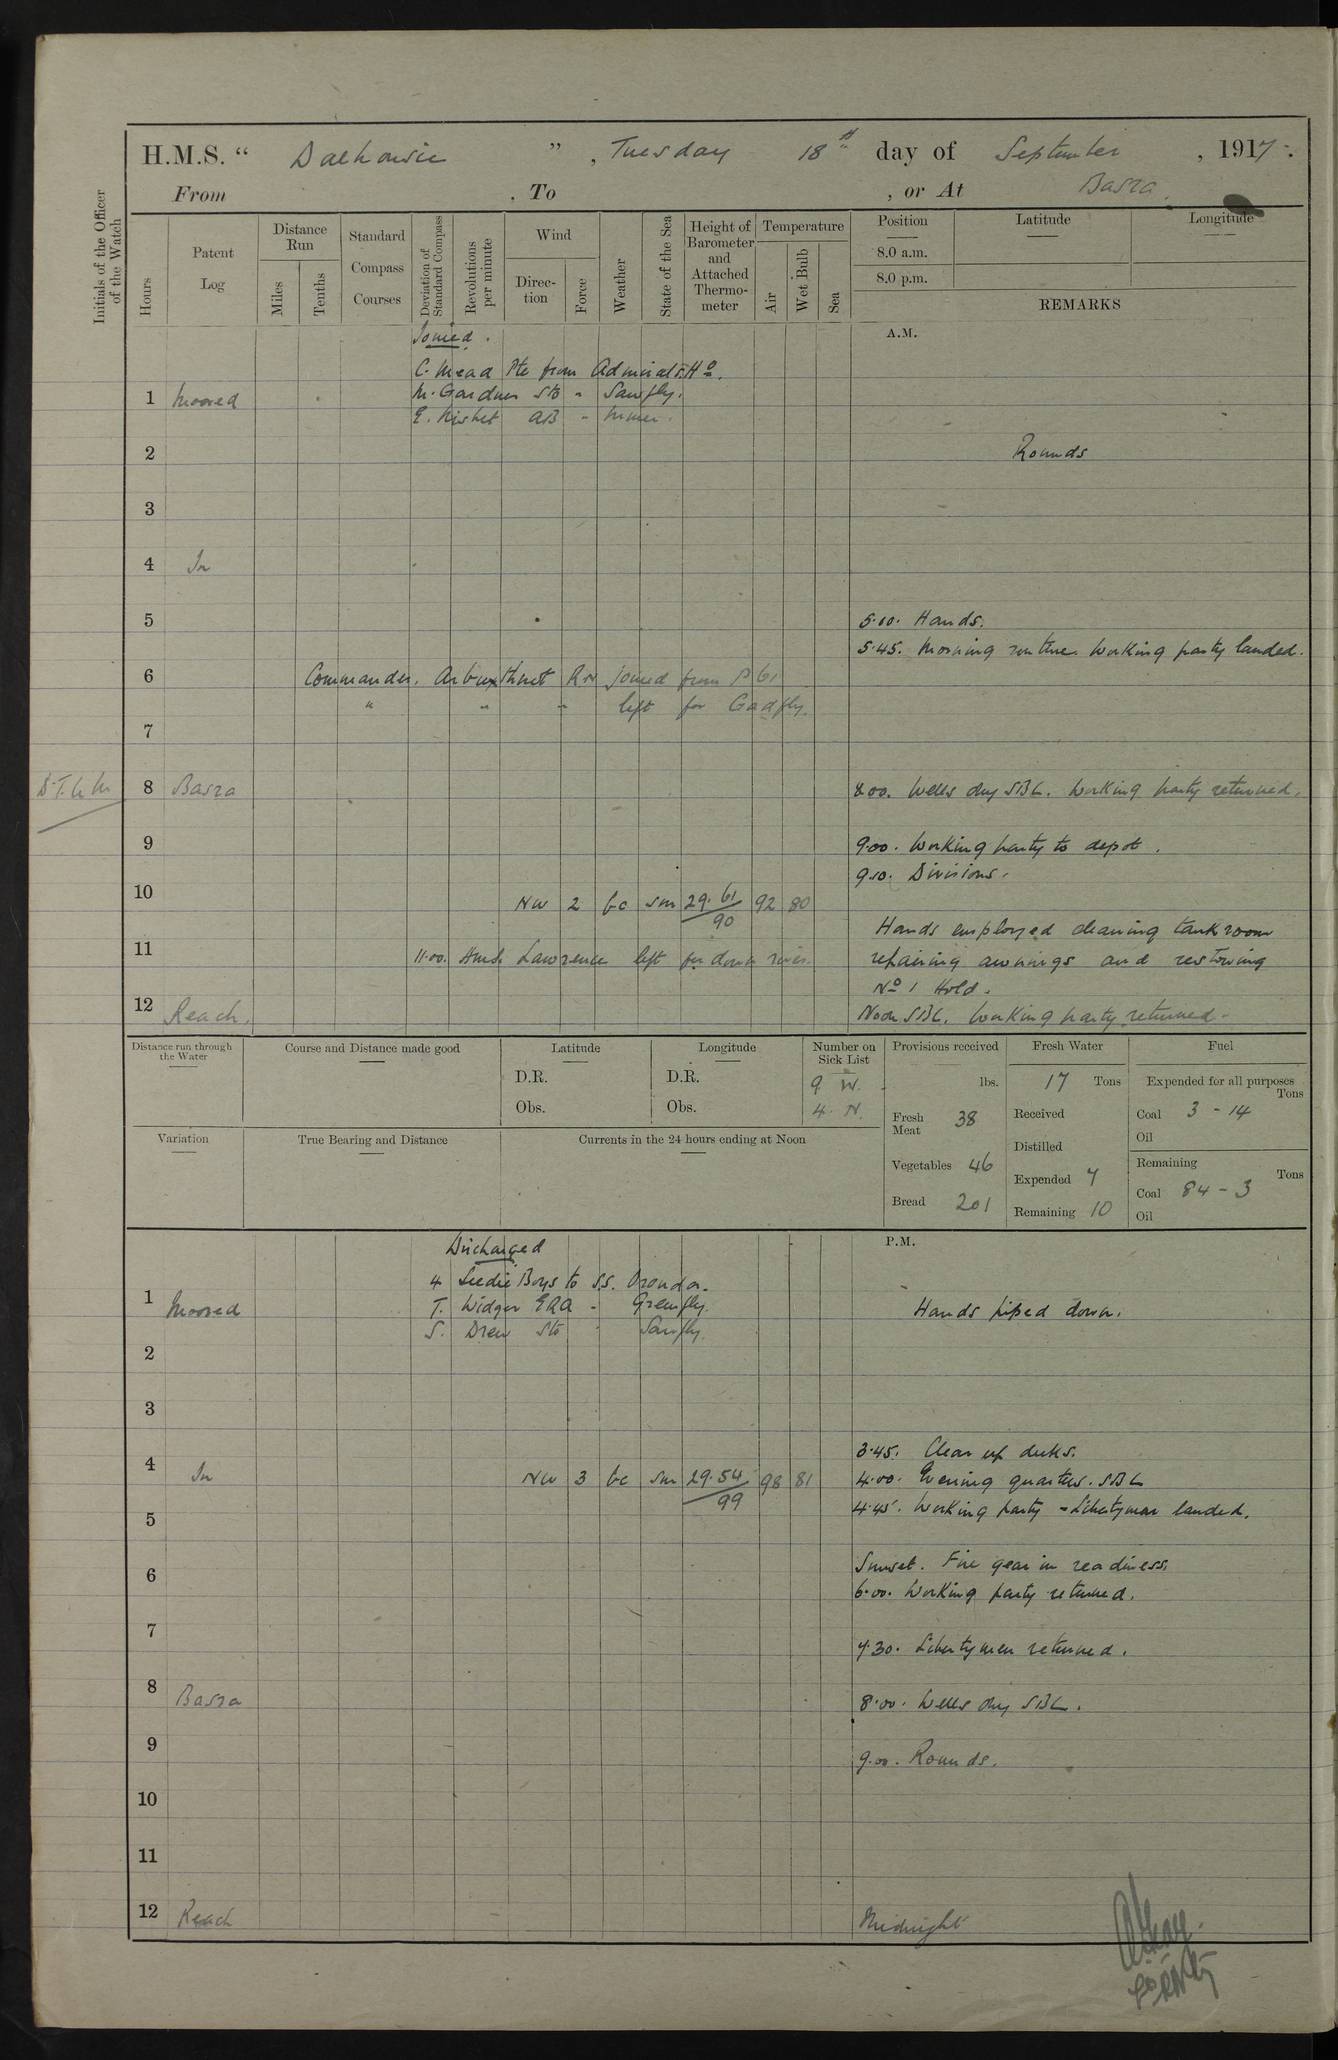 H.M.S. " Dalhousie ", Tuesday 18th day of September, 1917.
From , To , or At Basra.
Initials of the Officer of the Watch
Hours
Patent Log
Distance Run
Miles
Tenths
Standard Compass Courses
Deviation of Standard Compass
Revolutions per minute
Wind
Direc-tion
Force
Weather
State of the Sea
Height of Barometer and Attached Thermo-meter
Temperature
Air
Wet Bulb
Sea
Position
8.0 a.m.
8.0 p.m.
Latitude
Longitude
REMARKS
A.M.
Joined.
C. Mead Pte from Admirals Ho.
1 Moored
M. Gardner Sto " Sawfly.
E. Nisbet AB "
2 Rounds
3
4 In
5 5.10. Hands.
5.45. Morning routine. Working party landed.
6 Commander. Arbuthnot RN joined from P 61
" " " left for Gadfly.
7
8 Basra 8.00. Wells dry SBL. Working party returned.
9 9.00. Working party to depot.
9.10. Divisions.
10 NW 2 bc sm 29.61/90 92 80
Hands employed cleaning tank room
11 11.00. H.M.S. Lawrence left for down river. repairing awnings and restowing
No 1 Hold.
12 Reach. Noon SBL. Working party returned.
Distance run through the Water
Course and Distance made good
Latitude
D.R.
Obs.
Longitude
D.R.
Obs.
Number on Sick List
9 W.
4. N.
Provisions received
lbs.
Fresh Meat 38
Vegetables 46
Bread 201
Fresh Water
17 Tons
Received
Distilled
Expended 7
Remaining 10
Fuel
Expended for all purposes
Tons
Coal 3 - 14
Oil
Remaining
Tons
Coal 84 - 3
Oil
Variation
True Bearing and Distance
Currents in the 24 hours ending at Noon
P.M.
Discharged
4 Seedie Boys to S.S. Oronda.
1 Moored T. Widger ERA " Greenfly. Hands piped down.
S. Drew Sto " Sawfly.
2
3
3.45. Clear up decks.
4 In NW 3 bc sm 29.54/99 98 81 4.00. Evening quarters. SBL
4.45. Working party - Libertymen landed.
5
Sunset. Fire gear in readiness.
6 6.00. Working party returned.
7 7.30. Libertymen returned.
8 Basra 8.00. Wells dry SBL.
9 9.00. Rounds.
10
11
12 Reach Midnight